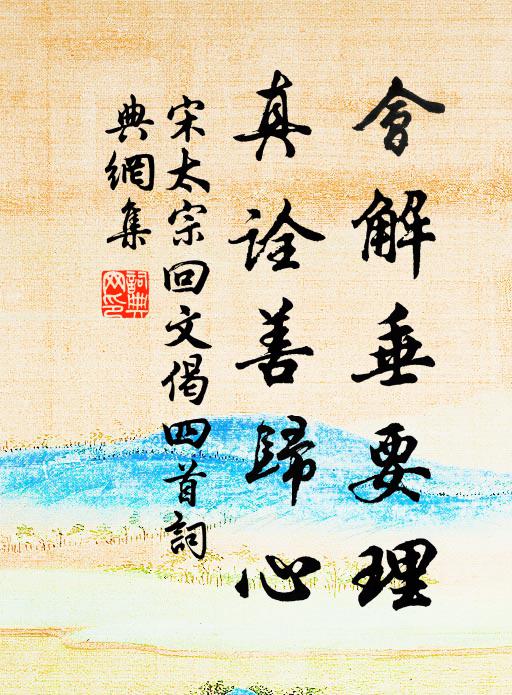 會解垂要理
真詮善歸心
宋太宗回文偈四首詞
典網集
詞典
网印